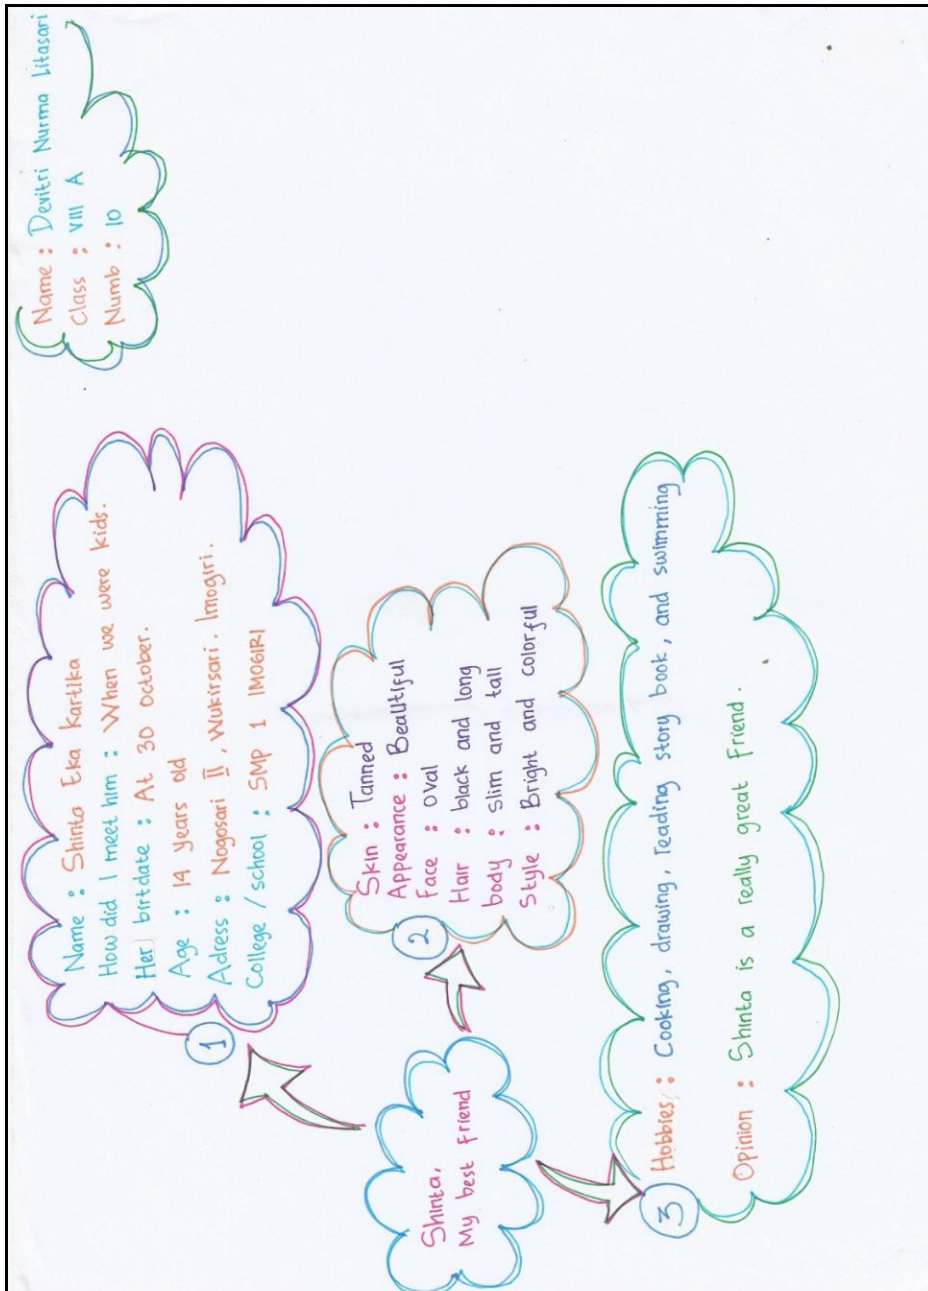 Name : Devitri Nurma Litasari
Class : VIII A
Numb : 10
Shinta,
My best Friend
1
Name : Shinta Eka Kartika
How did I meet him : When we were kids.
Her birtdate : At 30 October.
Age : 14 years old
Adress : Nogosari II, Wukirsari. Imogiri.
College / school : SMP 1 IMOGIRI
2
Skin : Tanned
Appearance : Beautiful
Face : oval
Hair : black and long
body : slim and tall
Style : Bright and colorful
3
Hobbies : Cooking, drawing, reading story book, and swimming
Opinion : Shinta is a really great Friend.